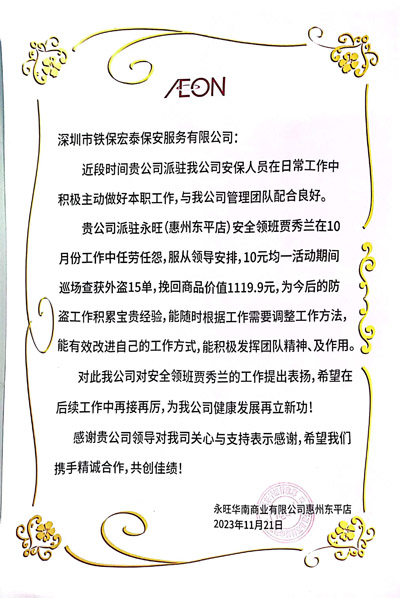 ÆON
深圳市铁保宏泰保安服务有限公司：
近段时间贵公司派驻我公司安保人员在日常工作中
积极主动做好本职工作,与我公司管理团队配合良好。
贵公司派驻永旺(惠州东平店)安全领班贾秀兰在10
月份工作中任劳任怨,服从领导安排,10元均一活动期间
巡场查获外盗15单,挽回商品价值1119.9元,为今后的防
盗工作积累宝贵经验,能随时根据工作需要调整工作方法,
能有效改进自己的工作方式,能积极发挥团队精神、及作用。
对此我公司对安全领班贾秀兰的工作提出表扬,希望在
后续工作中再接再厉,为我公司健康发展再立新功！
感谢贵公司领导对我司关心与支持表示感谢,希望我们
携手精诚合作,共创佳绩！
永旺华南商业有限公司惠州东平店
2023年11月21日